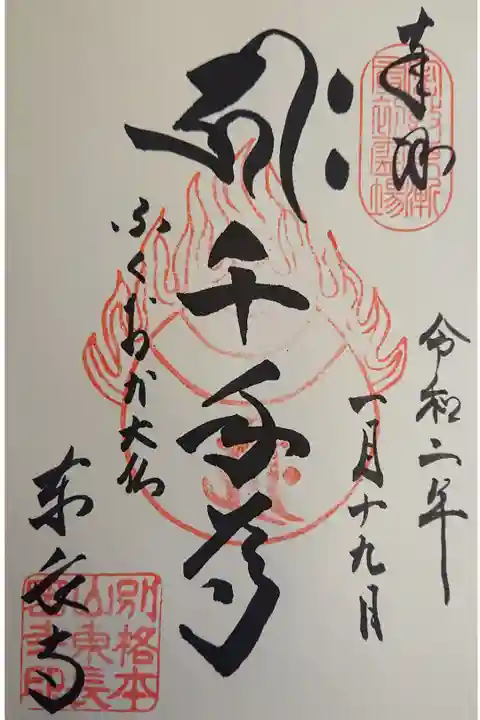 奉拝
令和二年
一月十九日
ह्रीः
千手尊
ふくおか大仏
東長寺
別格本
山東長
密寺印